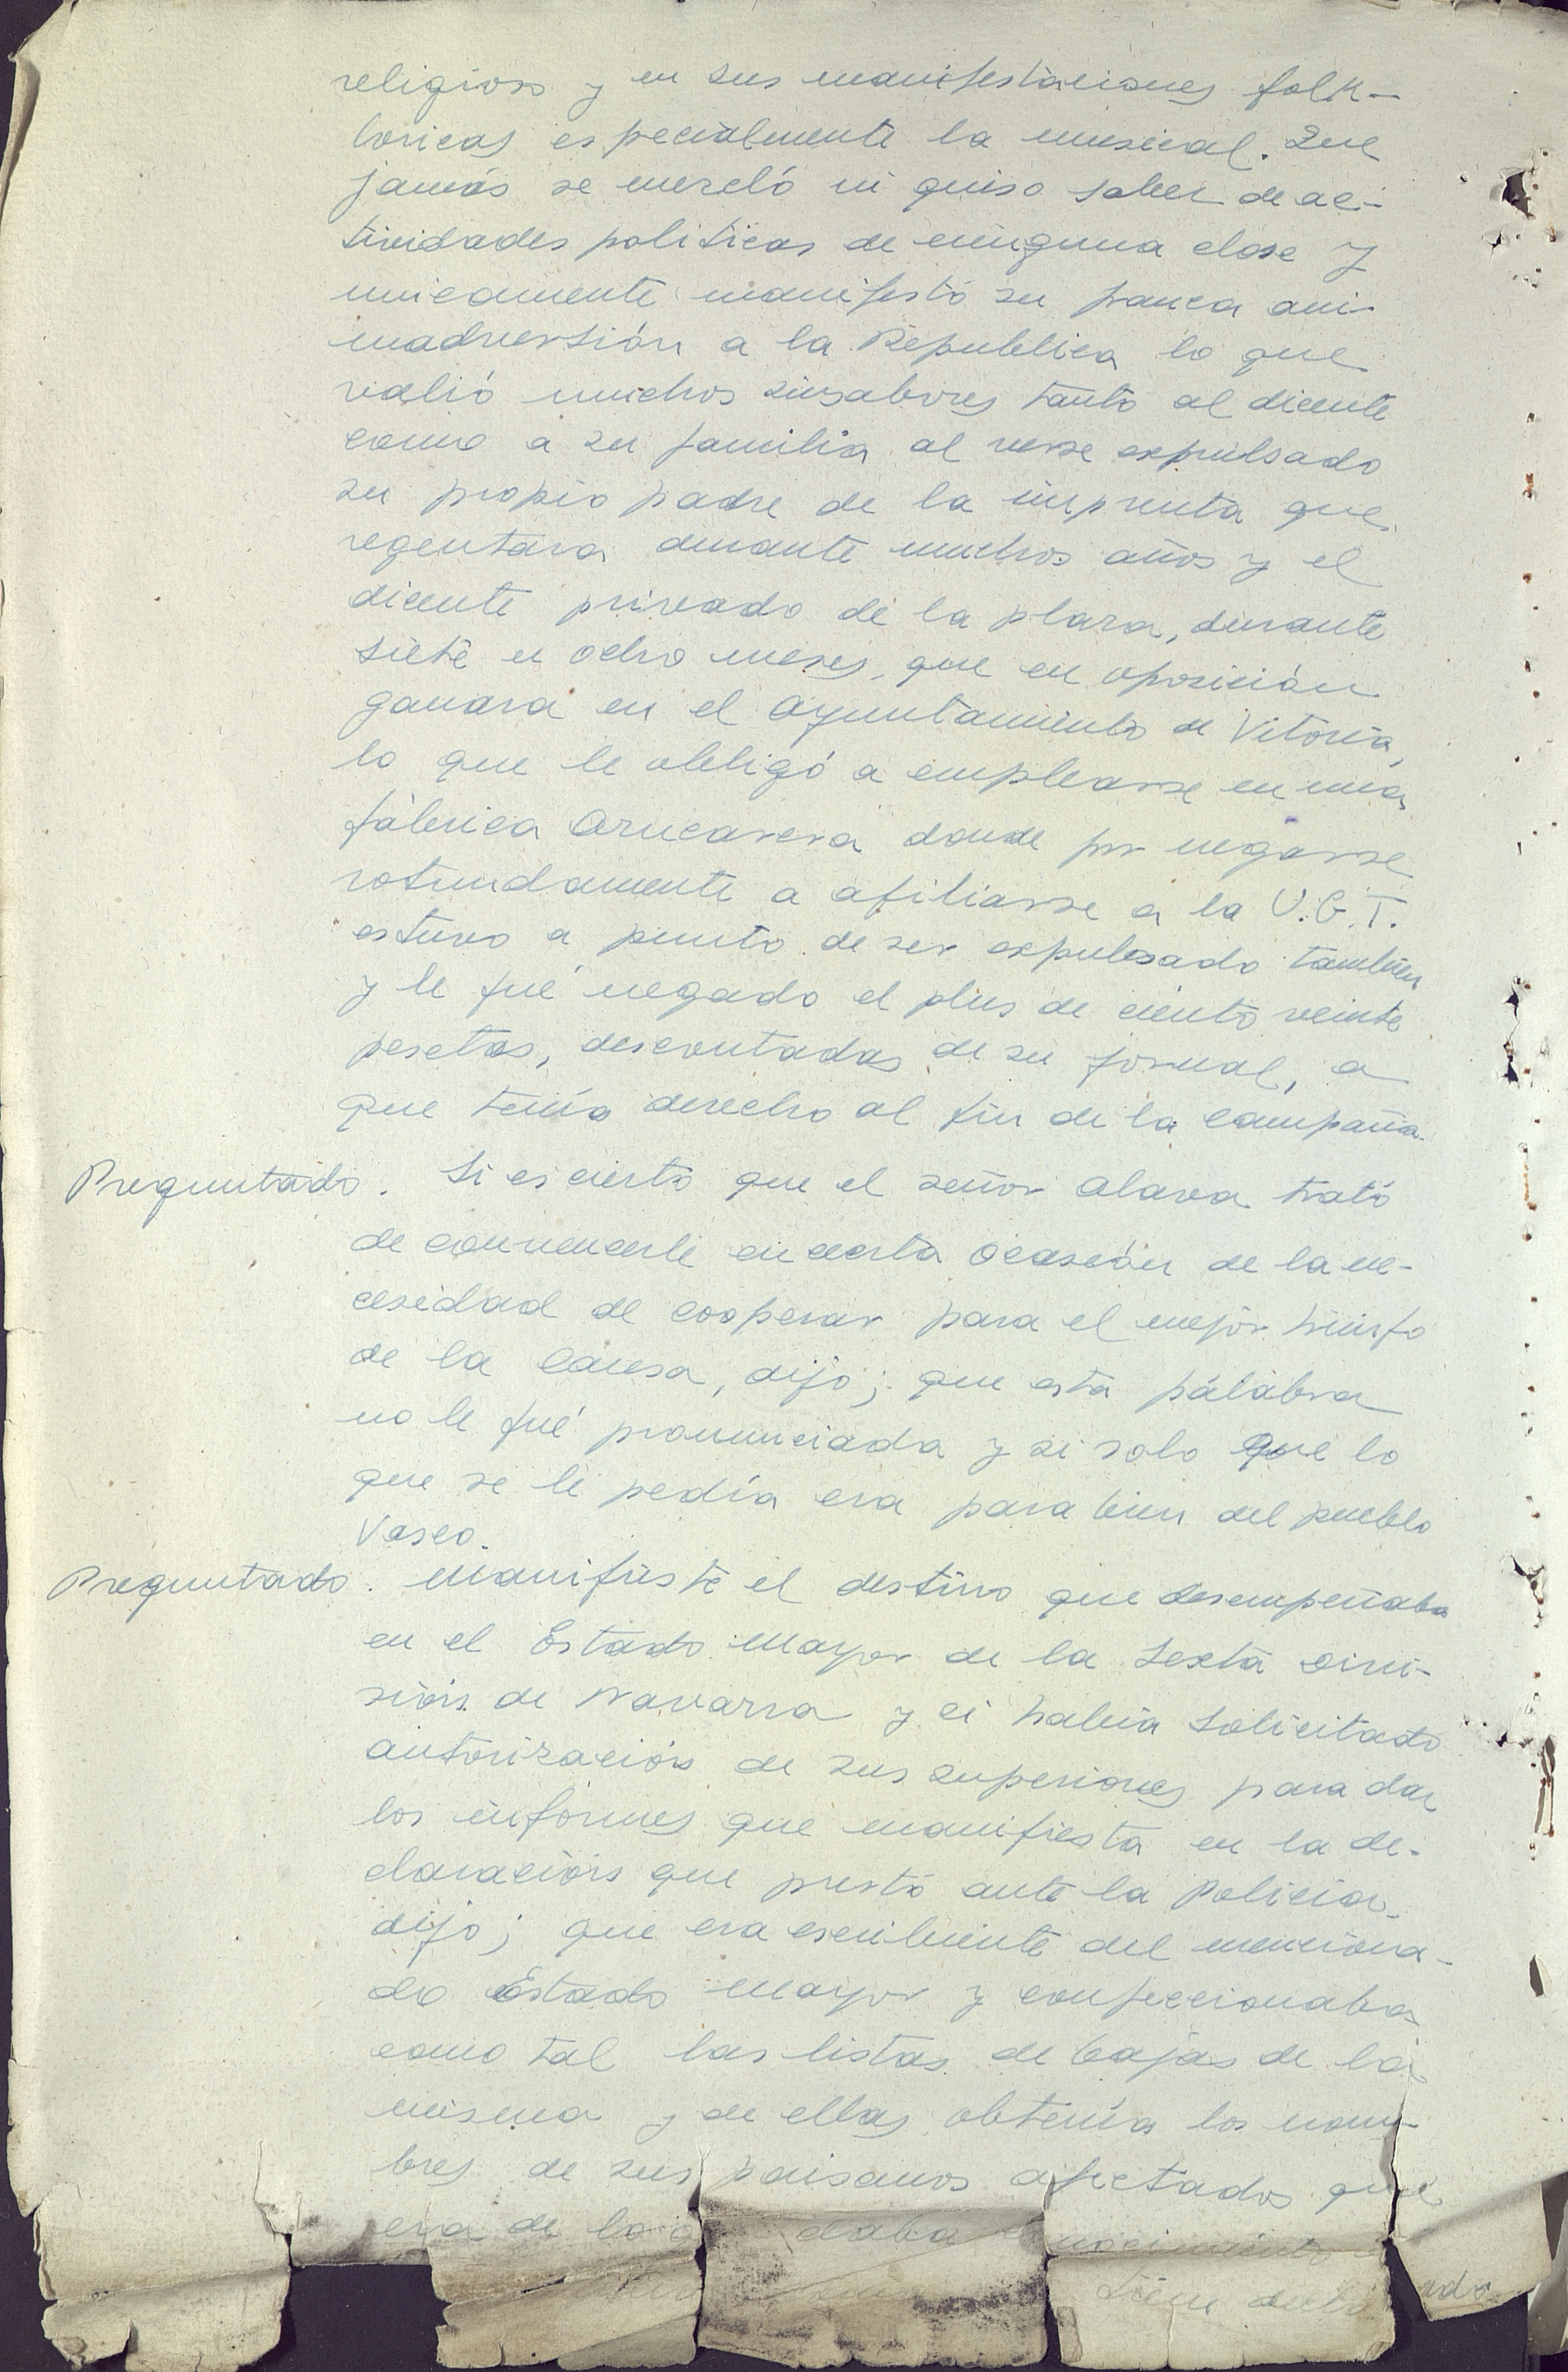 religioso y en sus manifestaciones folk-
loricas especialmente la musical. Que
jamás se mezcló ni quiso saber de ac-
tividades politicas de ninguna clase y
unicamente manifestó su franca ani-
madversión a la Republica lo que
valió muchos sinsabores tanto al dicente
como a su familia al verse expulsado
su propio padre de la imprenta que
regentara durante muchos años y el
dicente privado de la plaza, durante
siete u ocho meses, que en oposición
ganara en el Ayuntamiento de Vitoria,
lo que le obligó a emplearse en una
fábrica Azucarera donde por negarse
rotundamente a afiliarse a la U.G.T.
estuvo a punto de ser expulsado tambien
y le fué negado el plus de ciento veinte
pesetas, descontadas de su jornal, a
que tenía derecho al fin de la campaña.
Preguntado. Si es cierto que el señor Alava trató
de convencerle en cierta ocasión de la ne-
cesidad de cooperar para el mejor triunfo
de la Causa, dijo; que esta palabra
no le fué pronunciada y si solo que lo
que se le pedía era para bien del pueblo
Vasco.
Preguntado. Manifieste el destino que desempeñaba
en el Estado Mayor de la Sexta Divi-
sión de Navarra y si habia solicitado
autorización de sus superiores para dar
los informes que manifiesta en la de-
claración que prestó ante la Policia.
dijo; que era escribiente del menciona-
do Estado Mayor y confeccionaba
como tal las listas de bajas de la
misma y de ellas obtenía los nom-
bres de sus paisanos afectados que
era de lo daba